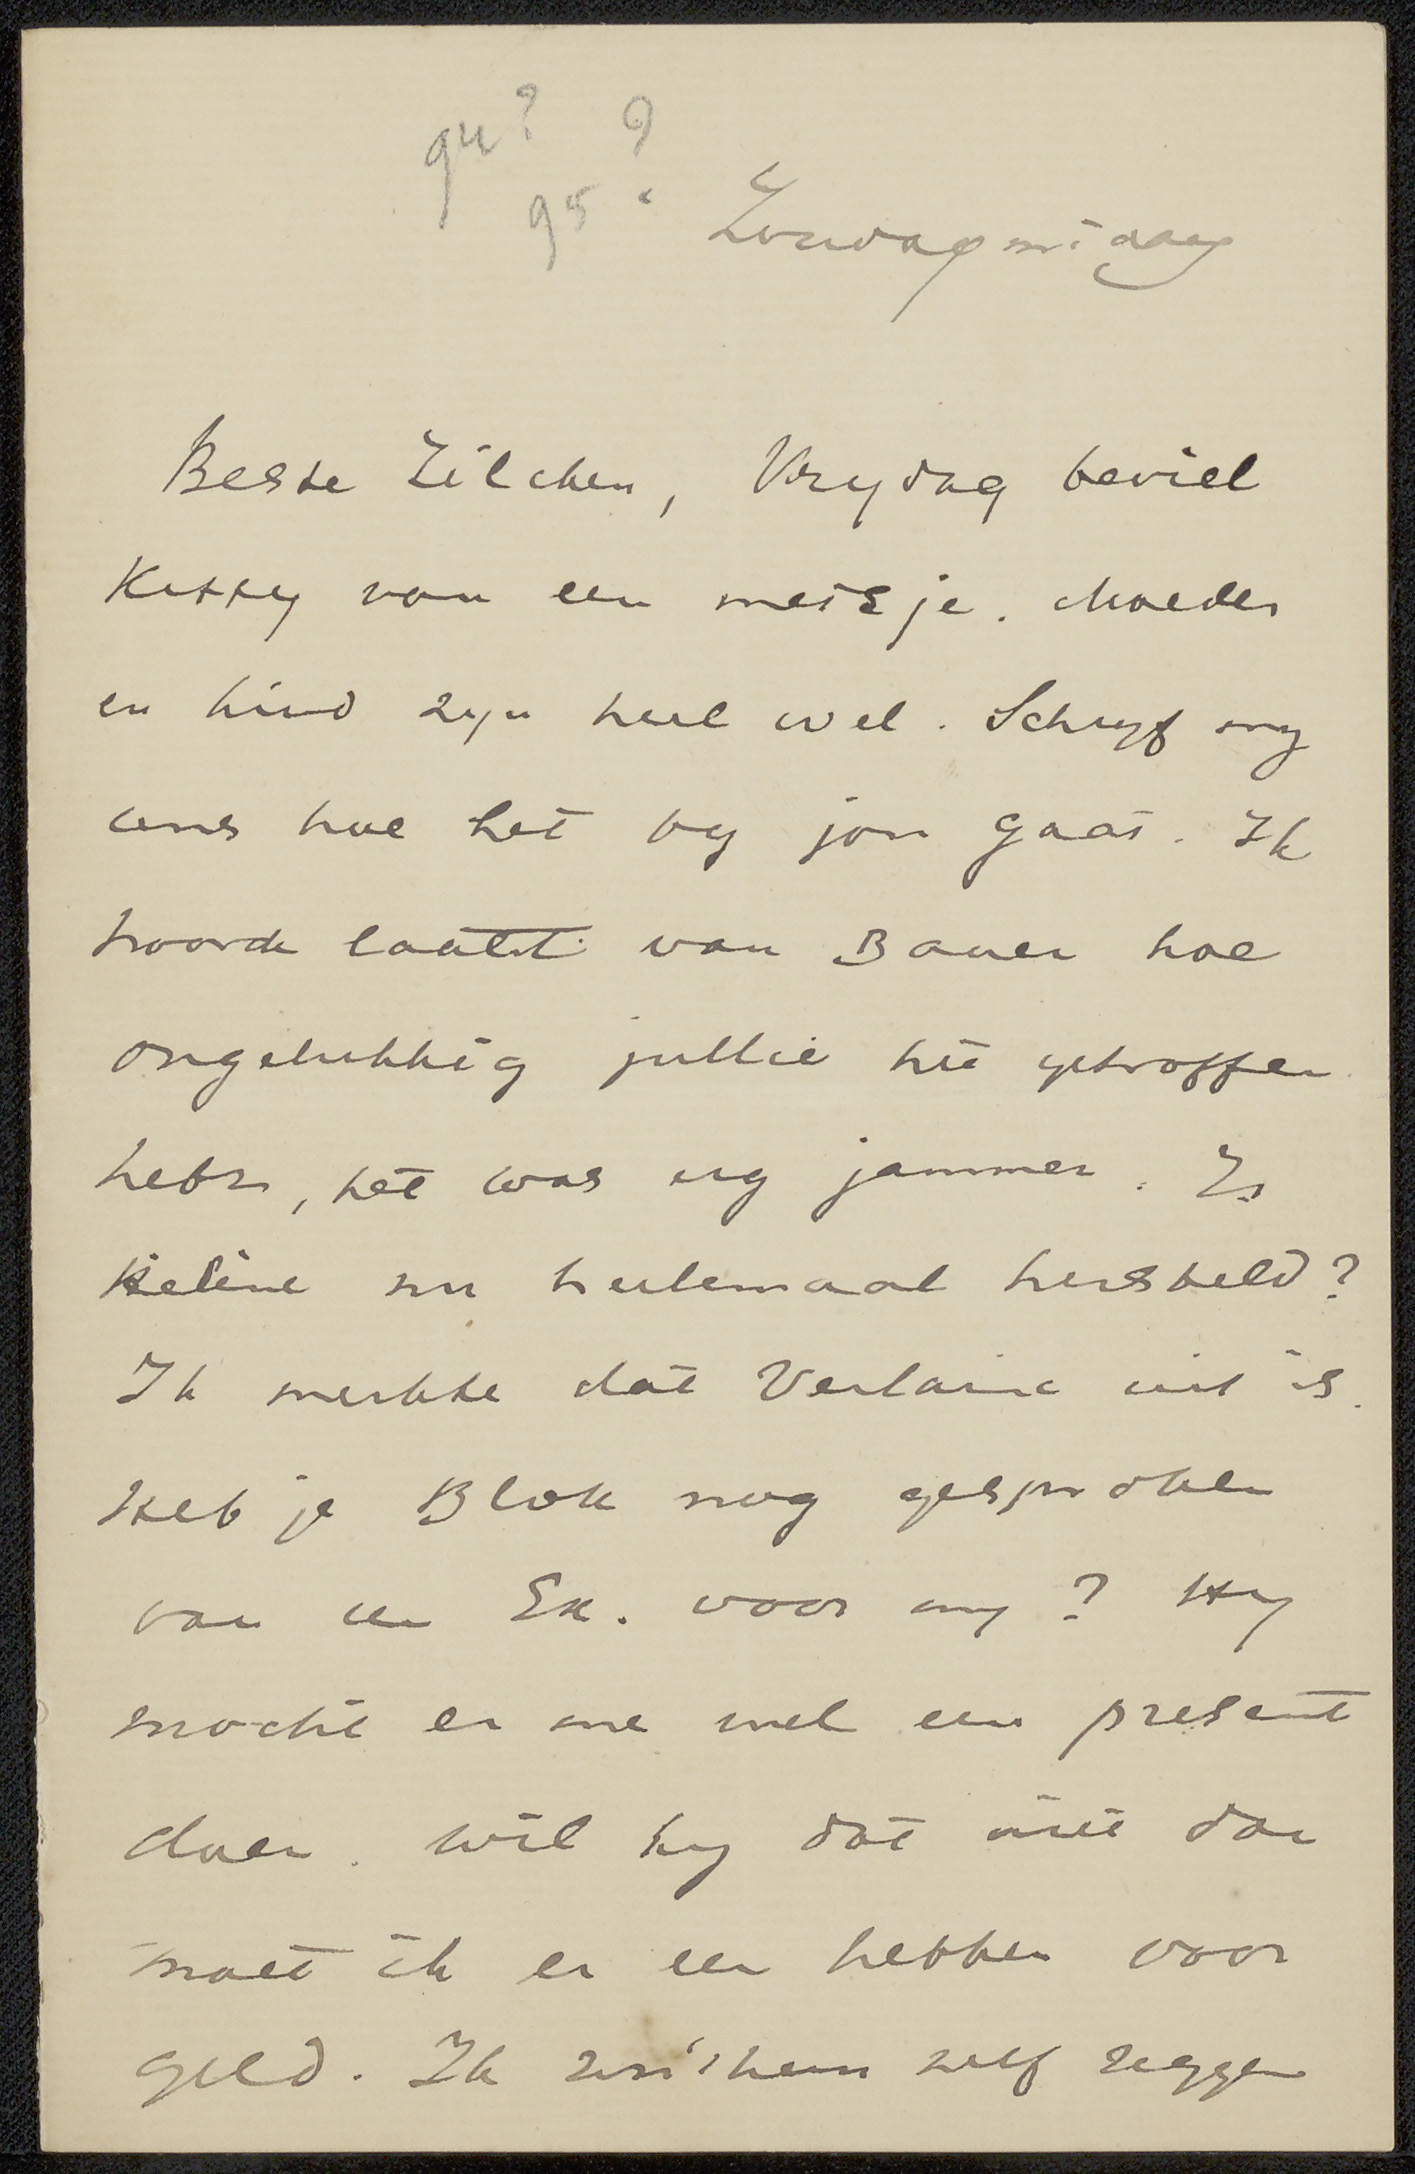 94?
95?
Zondagmidag
Beste Zilcken, Vrydag beviel
Kitty van een meisje. Moeder
en kind zyn heel wel. Schryf my
eens hoe het by jou gaat. Ik
hoorde laatst van Bauer hoe
ongelukkig jullie hit getroffen
hebn, het was erg jammer. Is
Heline nu heelemaal hersteld?
Ik merkte dat Verlaine uit is.
Heb je Blok nog gesproken
van een Ex. voor my? Hy
mocht er me wel een present
doen. Wil hy dat niet dan
moet ik er een hebben voor
geld. Ik zou 't hem zelf zeggen